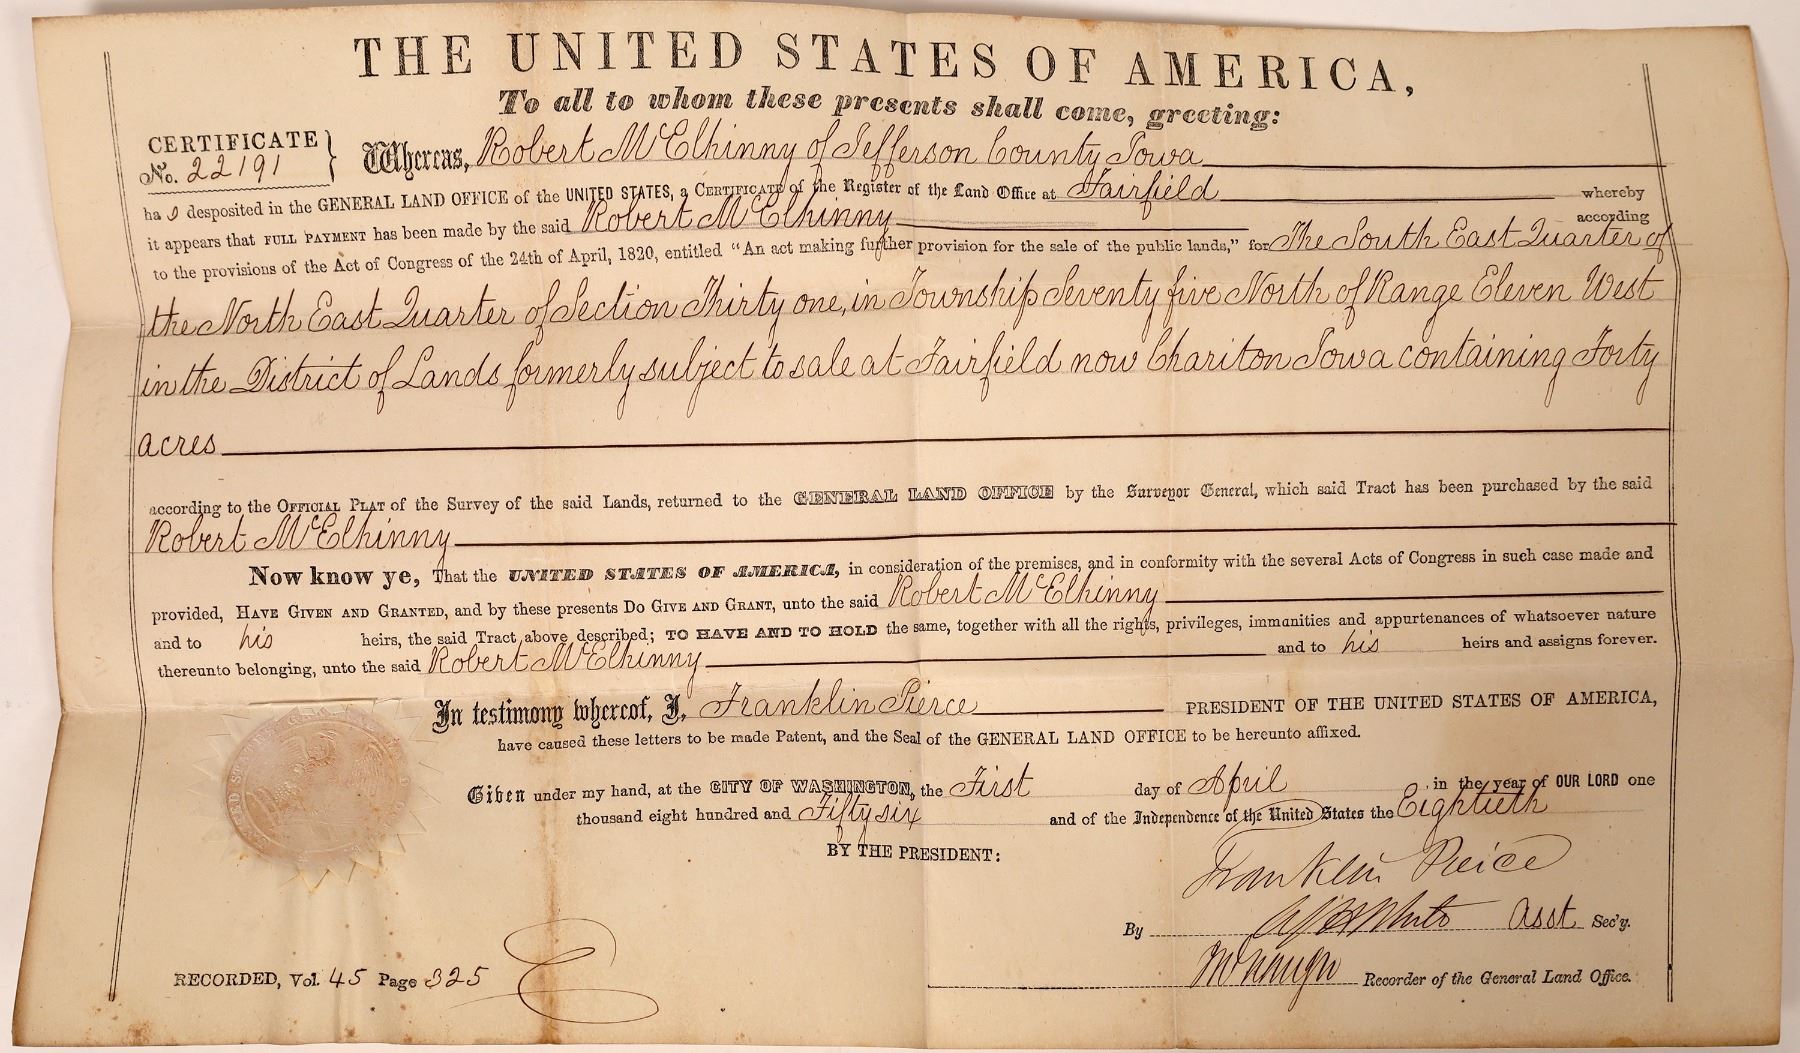 THE UNITED STATES OF AMERICA,
To all to whom these presents shall come, greeting:
CERTIFICATE
No. 22191 } Whereas, Robert McElhinny of Jefferson County Iowa
ha s desposited in the GENERAL LAND OFFICE of the UNITED STATES, a CERTIFICATE of the Register of the Land Office at Fairfield whereby
it appears that FULL PAYMENT has been made by the said Robert McElhinny according
to the provisions of the Act of Congress of the 24th of April, 1820, entitled "An act making further provision for the sale of the public lands," for The South East Quarter of
the North East Quarter of Section Thirty one, in Township Seventy five North of Range Eleven West
in the District of Lands formerly subject to sale at Fairfield now Chariton Iowa containing Forty
acres
according to the OFFICIAL PLAT of the Survey of the said Lands, returned to the GENERAL LAND OFFICE by the Surveyor General, which said Tract has been purchased by the said
Robert McElhinny
Now know ye, That the UNITED STATES OF AMERICA, in consideration of the premises, and in conformity with the several Acts of Congress in such case made and
provided, HAVE GIVEN AND GRANTED, and by these presents DO GIVE AND GRANT, unto the said Robert McElhinny
and to his heirs, the said Tract above described; TO HAVE AND TO HOLD the same, together with all the rights, privileges, immanities and appurtenances of whatsoever nature
thereunto belonging, unto the said Robert McElhinny and to his heirs and assigns forever.
In testimony whereof, I, Franklin Pierce PRESIDENT OF THE UNITED STATES OF AMERICA,
have caused these letters to be made Patent, and the Seal of the GENERAL LAND OFFICE to be hereunto affixed.
Given under my hand, at the CITY OF WASHINGTON, the First day of April in the year of OUR LORD one
thousand eight hundred and Fifty six and of the Independence of the United States the Eightieth
BY THE PRESIDENT:
Franklin Pierce
By Asst Sec'y.
RECORDED, Vol. 45 Page 325
Recorder of the General Land Office.